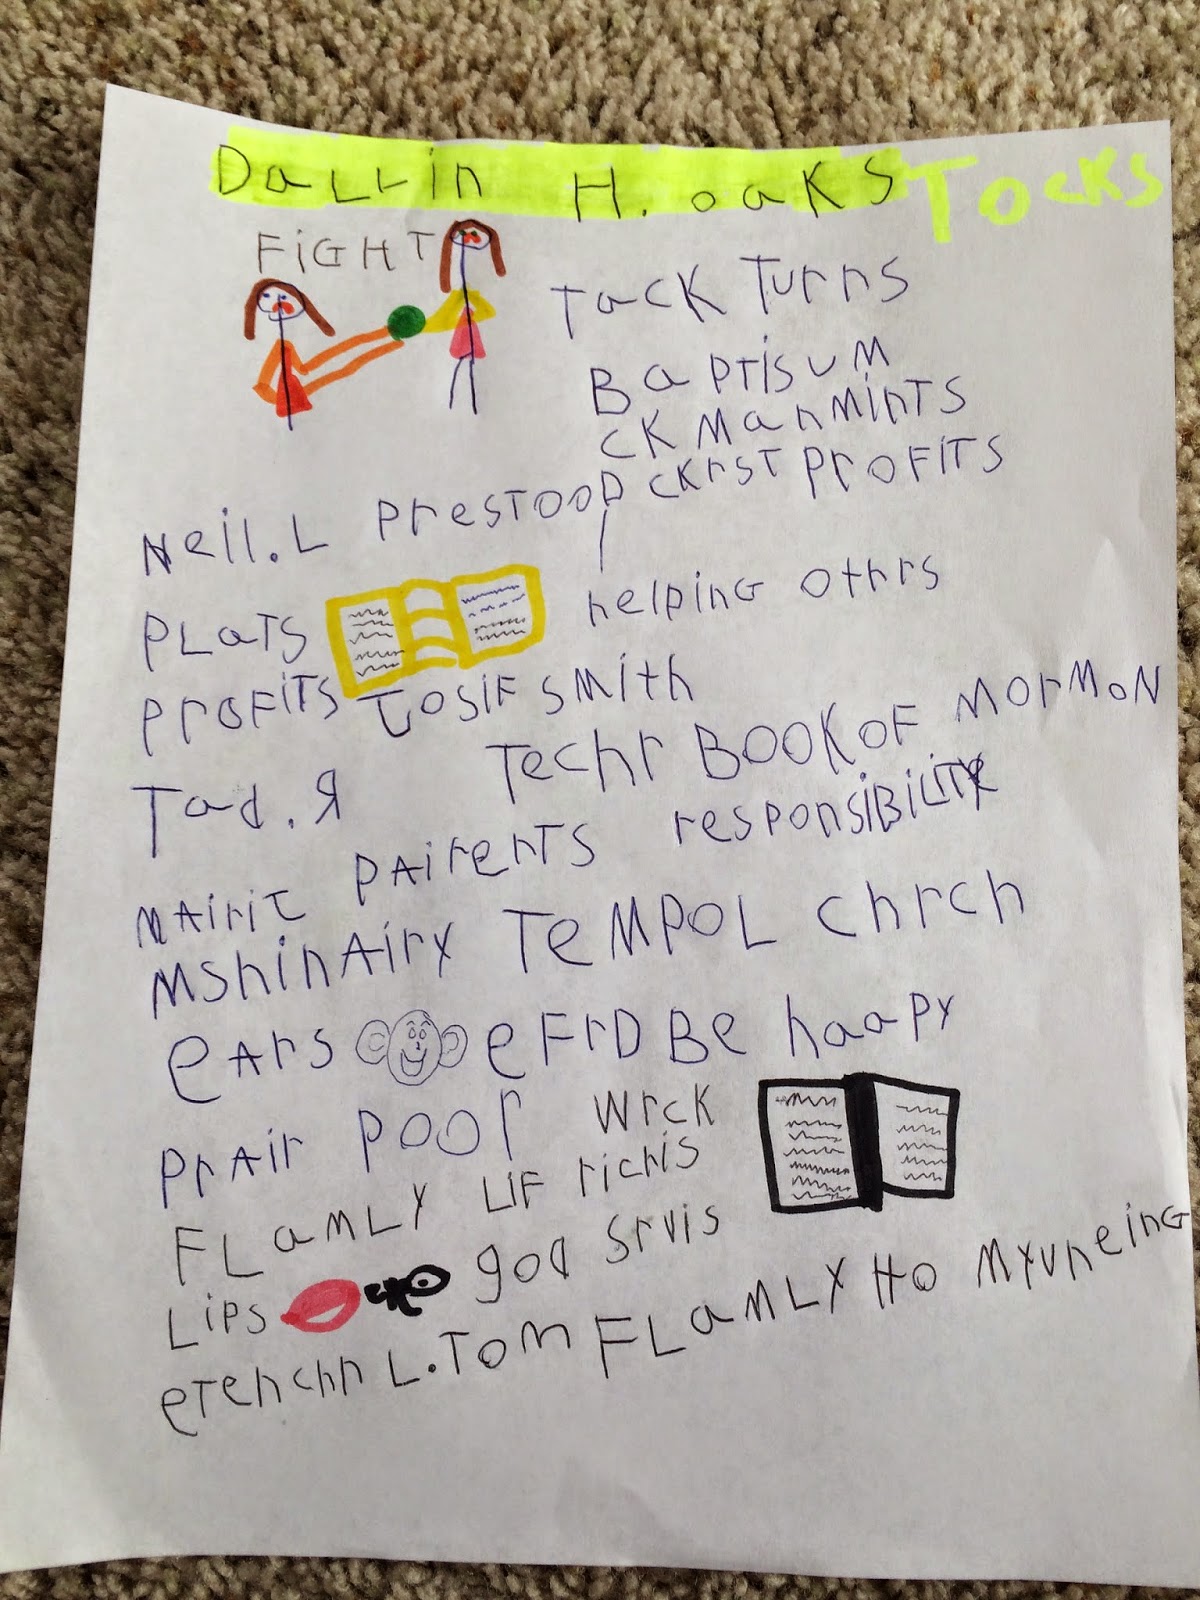 Dallin H. oaks Tocks
FiGHT
Tack Turns
Baptisum
ckmanmints
Neil.L Prestood ckrst Profits
PLaTs helping othrs
ProfiTs Josif smith
Techr Book of Mormon
Tad.R
mairiJ pairents responsibility
mshinairy Tempol chrch
ears efrd Be haapy
prair poor wrck
FLamLy Lif richis
Lips god srvis
etehchn L.Tom FLamLy Ho myuneing